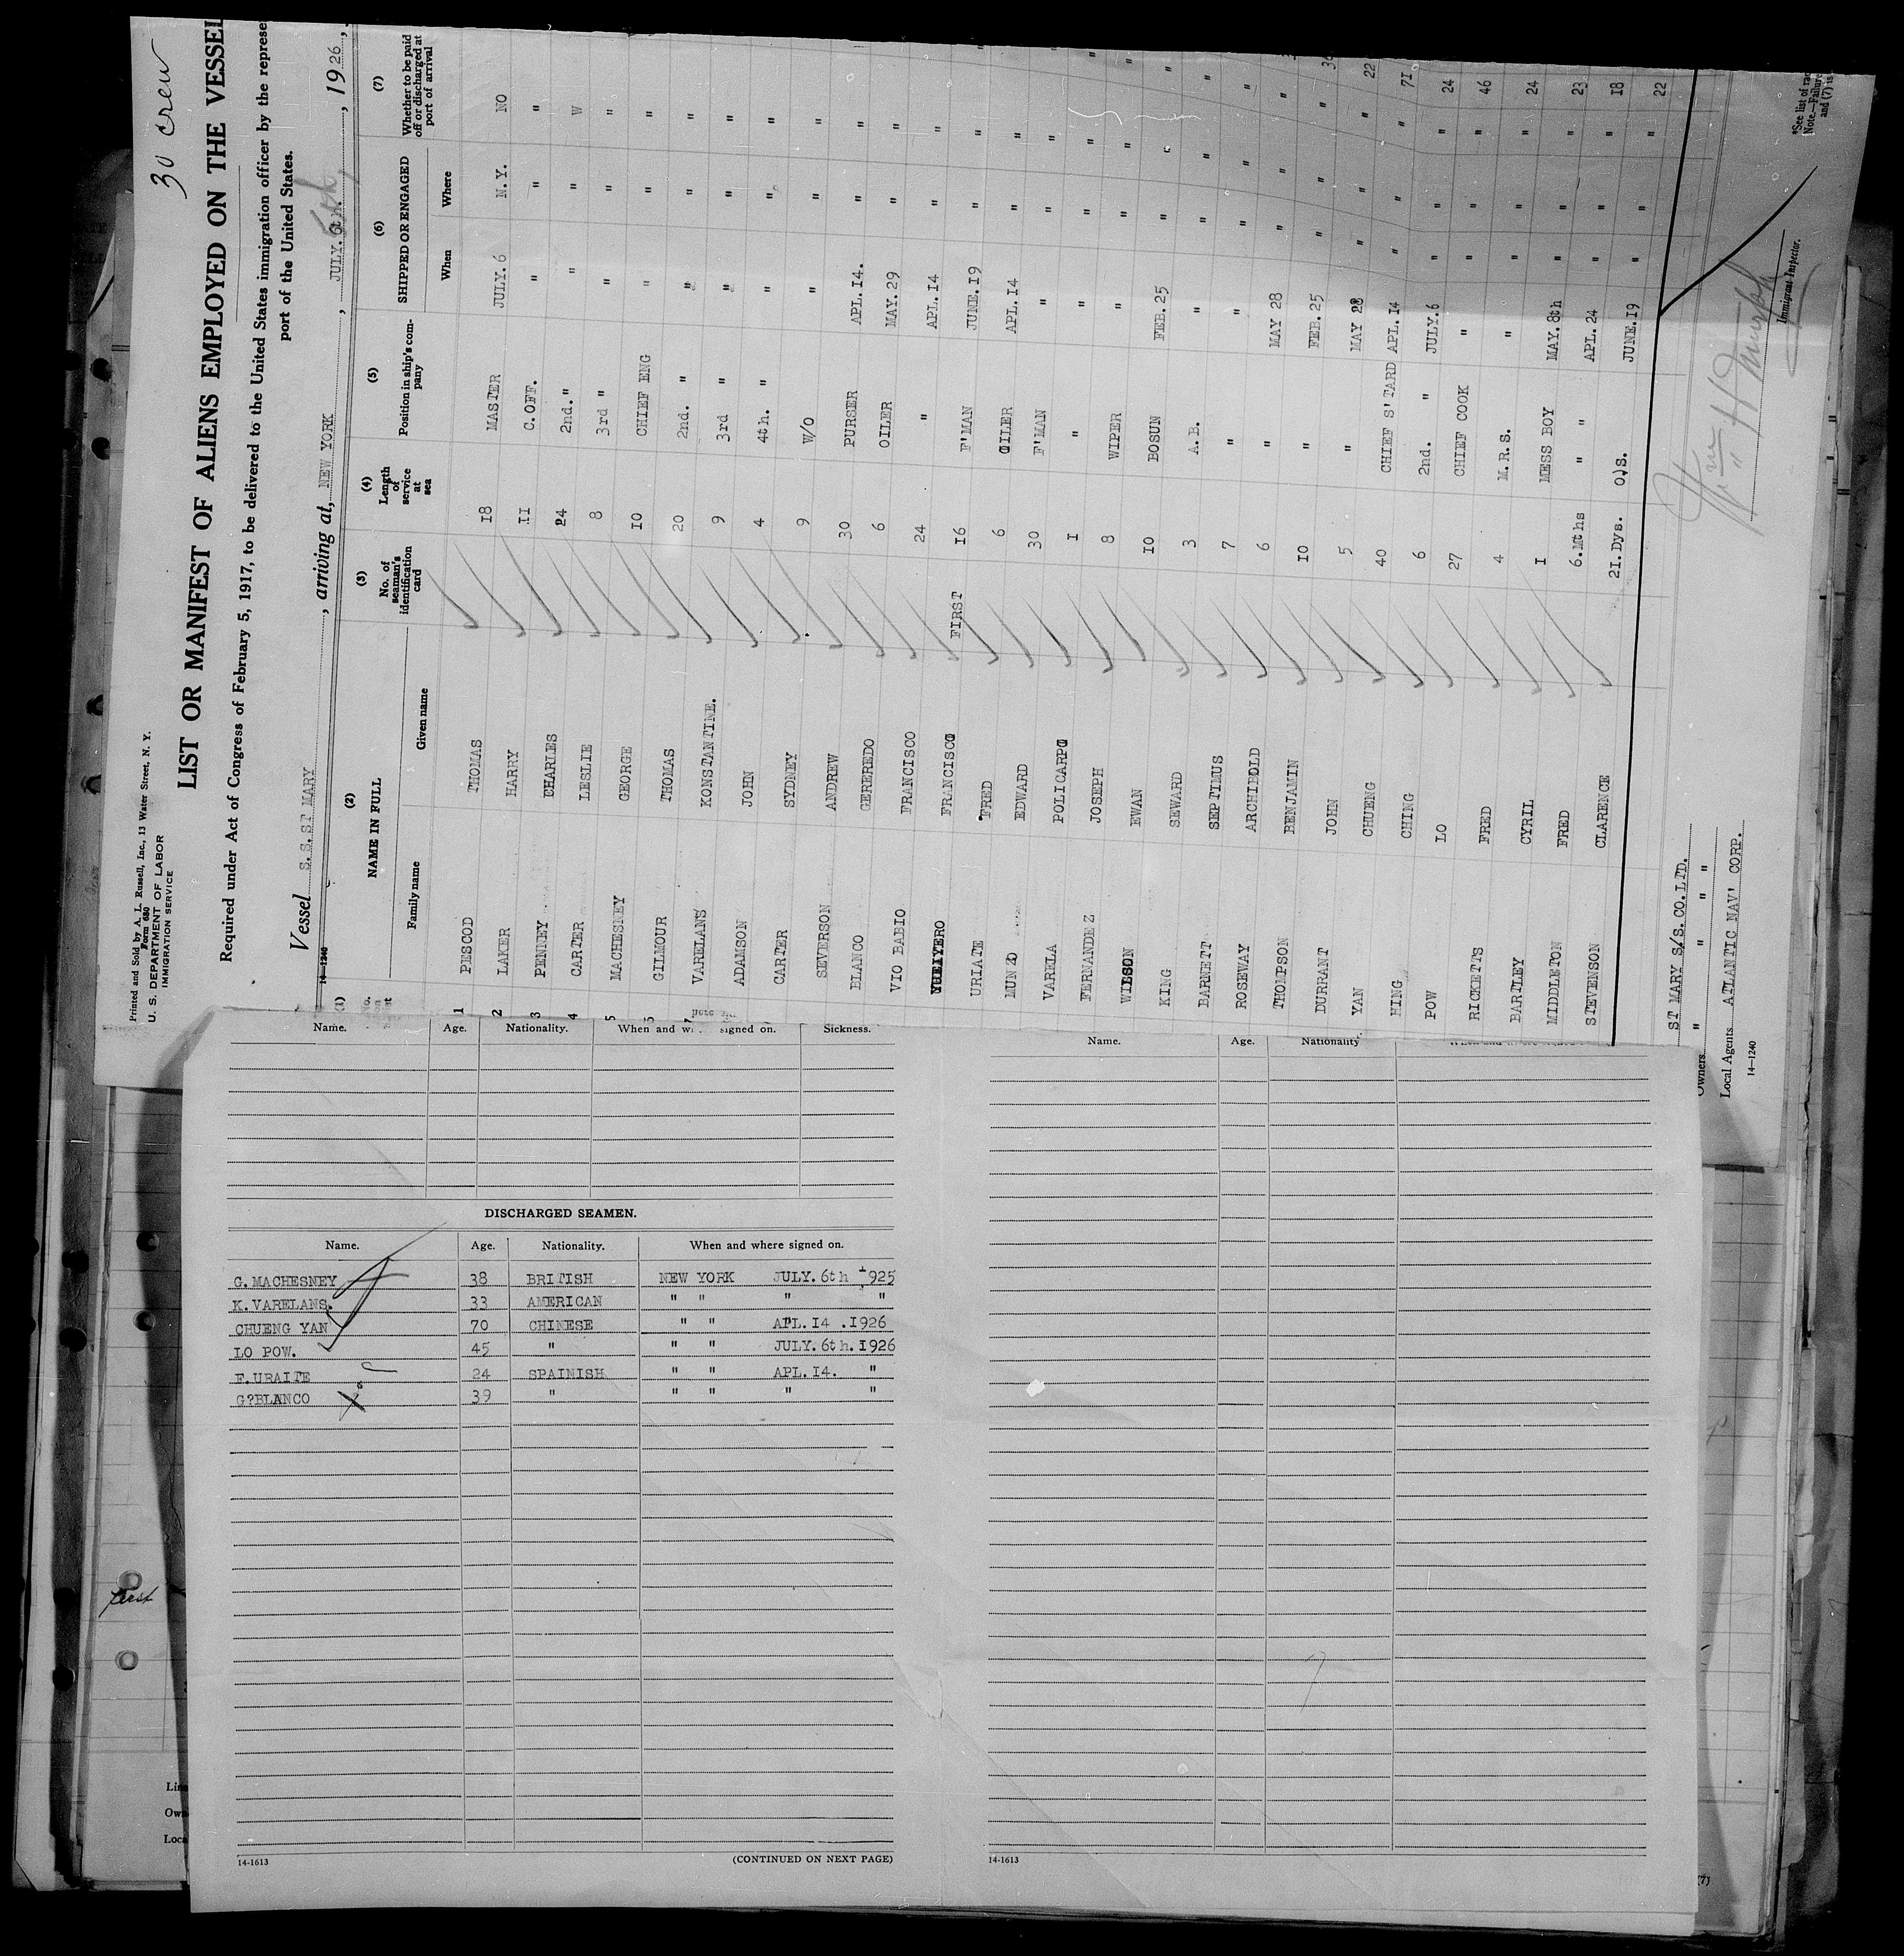 30 crew
Printed and Sold by A. L. Russell, Inc., 13 Water Street, N. Y.
Form 680
U. S. DEPARTMENT OF LABOR
IMMIGRATION SERVICE
LIST OR MANIFEST OF ALIENS EMPLOYED ON THE VESSEL
Required under Act of Congress of February 5, 1917, to be delivered to the United States immigration officer by the represe
port of the United States.
Vessel S.S.ST MARY , arriving at, NEW YORK , JULY. 6th. , 1926 ,
14—1240
(1) (2) (3) (4) (5) (6) (7)
NAME IN FULL No. of seaman's identification card Length of service at sea Position in ship's company SHIPPED OR ENGAGED Whether to be paid off or discharged at port of arrival
Family name Given name When Where
1 PESCOD THOMAS 18 MASTER JULY.6 N.Y. NO
2 LAKER HARRY 11 C.OFF. " " "
3 PENNEY CHARLES 24 2nd." " " "
4 CARTER LESLIE 8 3rd " " " "
5 MACHESNEY GEORGE 10 CHIEF ENG " " "
GILMOUR THOMAS 20 2nd. " " " "
7 VARELANS KONSTANTINE. 9 3rd " " " "
ADAMSON JOHN 4 4th. " " " "
CARTER SYDNEY 9 W/O " " "
SEVERSON ANDREW 30 PURSER APL.14. " "
BLANCO GEREREDO 6 OILER MAY.29 " "
VIO BABIO FRANCISCO 24 " APL.14 " "
FRANCISCO FIRST 16 F'MAN JUNE.19 " "
URIATE FRED 6 OILER APL.14 " "
MUNZO EDWARD 30 F'MAN " " "
VARELA POLICARPO 1 " " " "
FERNANDEZ JOSEPH 8 WIPER " " "
WILSON EWAN 10 BOSUN FEB.25 " "
KING SEWARD 3 A.B. " " "
BARNETT SEPTIMUS 7 " " " "
ROSEWAY ARCHIBOLD 6 " MAY 28 " "
THOMPSON BENJAMIN 10 " FEB.25 " "
DURRANT JOHN 5 " MAY 28 " " 22
YAN CHUENG 40 CHIEF S'TARD APL.14 " " 71
HING CHING 6 2nd. " JULY.6 " " 24
POW LO 27 CHIEF COOK " " " 46
RICKETTS FRED 4 M.R.S. " " " 24
BARTLEY CYRIL 1 MESS BOY MAY.8th " " 23
MIDDLETON FRED 6.Mths " " APL.24 " " 18
STEVENSON CLARENCE 21.Dys. O.S. JUNE.19 " " 22
ST MARY S/S.CO.LTD.
Owners " " " "
Local Agents ATLANTIC NAV' CORP.
14—1240
Immigrant Inspector.
*See list of rac
Note.—Failure
and (7) is
Name. Age. Nationality. When and w signed on. Sickness.
DISCHARGED SEAMEN.
Name. Age. Nationality. When and where signed on.
G.MACHESNEY 38 BRITISH NEW YORK JULY.6th 1925
K.VARELANS. 33 AMERICAN " " " "
CHUENG YAN 70 CHINESE " " APL.14 .1926
LO POW. 45 " " " JULY.6th.1926
F.URAITE 24 SPAINISH " " APL.14. "
G?BLANCO 39 " " " " "
14-1613 (CONTINUED ON NEXT PAGE)
Name. Age. Nationality
14-1613
first
Line
Own
Loca
(7)